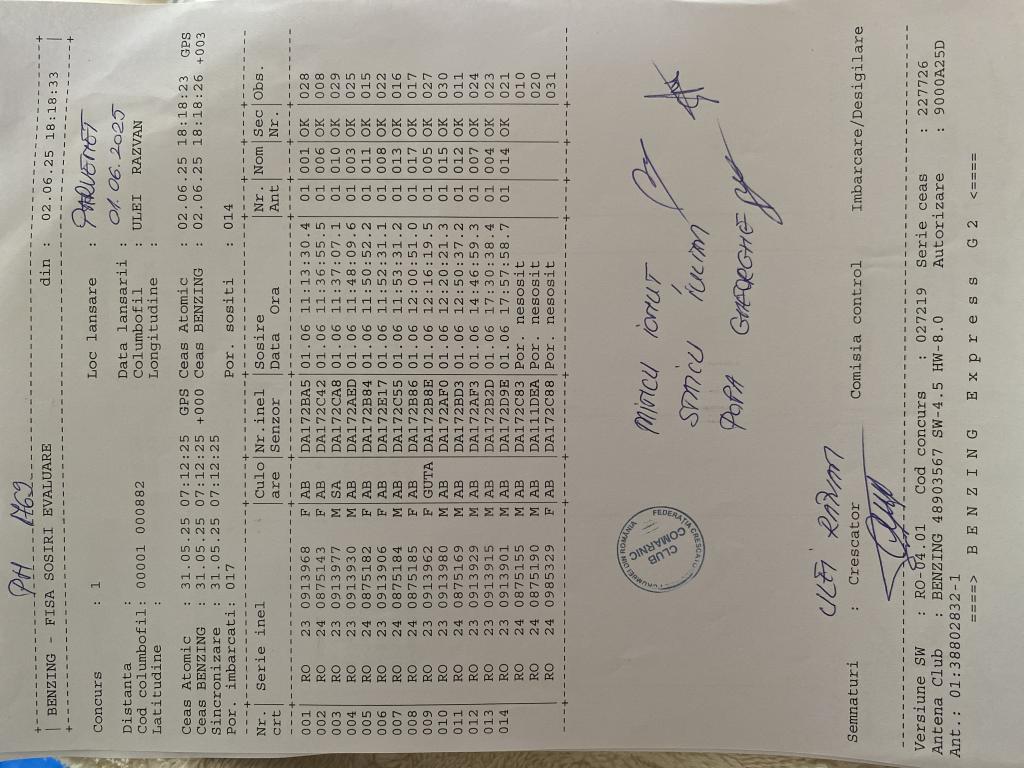 PH 1469
BENZING - FISA SOSIRI EVALUARE din : 02.06.25 18:18:33
Concurs : 1 Loc lansare :
Distanta : Data lansarii : 01.06.2025
Cod columbofil: 00001 000882 Columbofil : ULEI RAZVAN
Latitudine : Longitudine :
Ceas Atomic : 31.05.25 07:12:25 GPS Ceas Atomic : 02.06.25 18:18:23 GPS
Ceas BENZING : 31.05.25 07:12:25 +000 Ceas BENZING : 02.06.25 18:18:26 +003
Sincronizare : 31.05.25 07:12:25
Por. imbarcati: 017 Por. sositi : 014
Nr| Serie inel |Culo|Nr.inel |Sosire |Nr. |Nom|Sec|Obs.
crt |are |Senzor |Data Ora |Ant | |Nr.|
001 RO 23 0913968 F AB DA172BA5 01.06 11:13:30.4 01 001 OK 028
002 RO 24 0875143 F AB DA172C42 01.06 11:36:55.5 01 006 OK 008
003 RO 23 0913977 M SA DA172CA8 01.06 11:37:07.1 01 010 OK 029
004 RO 23 0913930 M AB DA172AED 01.06 11:48:09.6 01 003 OK 025
005 RO 24 0875182 F AB DA172B84 01.06 11:50:52.2 01 011 OK 015
006 RO 23 0913906 F AB DA172E17 01.06 11:52:31.1 01 008 OK 022
007 RO 24 0875184 M AB DA172C55 01.06 11:53:31.2 01 013 OK 016
008 RO 24 0875185 F AB DA172B86 01.06 12:00:51.0 01 017 OK 017
009 RO 23 0913962 F GUTA DA172B8E 01.06 12:16:19.5 01 005 OK 027
010 RO 23 0913980 M AB DA172AF0 01.06 12:20:21.3 01 015 OK 030
011 RO 24 0875169 M AB DA172BD3 01.06 12:50:37.2 01 012 OK 011
012 RO 23 0913929 M AB DA172AF3 01.06 14:46:59.3 01 007 OK 024
013 RO 23 0913915 M AB DA172B2D 01.06 17:30:38.4 01 004 OK 023
014 RO 23 0913901 M AB DA172D9E 01.06 17:57:58.7 01 014 OK 021
RO 24 0875155 M AB DA172C83 Por. nesosit 010
RO 24 0875190 M AB DA111DEA Por. nesosit 020
RO 24 0985329 F AB DA172C88 Por. nesosit 031
CLUB
COMARNIC
MINCU IONUT
STOICU
POPA GHEORGHE
ULEI RAZVAN
Semnaturi : Crescator Comisia control Imbarcare/Desigilare
Versiune SW : RO-04.01 Cod concurs : 027219 Serie ceas : 227726
Antena Club : BENZING 48903567 SW-4.5 HW-8.0 Autorizare : 9000A25D
Ant.: 01:38802832-1
====> B E N Z I N G E x p r e s s G 2 <====